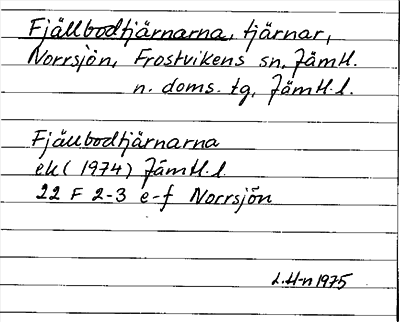 Fjällbodtjärnarna, tjärnar,
Norrsjön, Frostvikens sn, Jämtl.
n. doms. tg, Jämtl.l.
Fjällbodtjärnarna
ek (1974) Jämtl.l.
22 F 2-3 e-f Norrsjön
L.H-n 1975